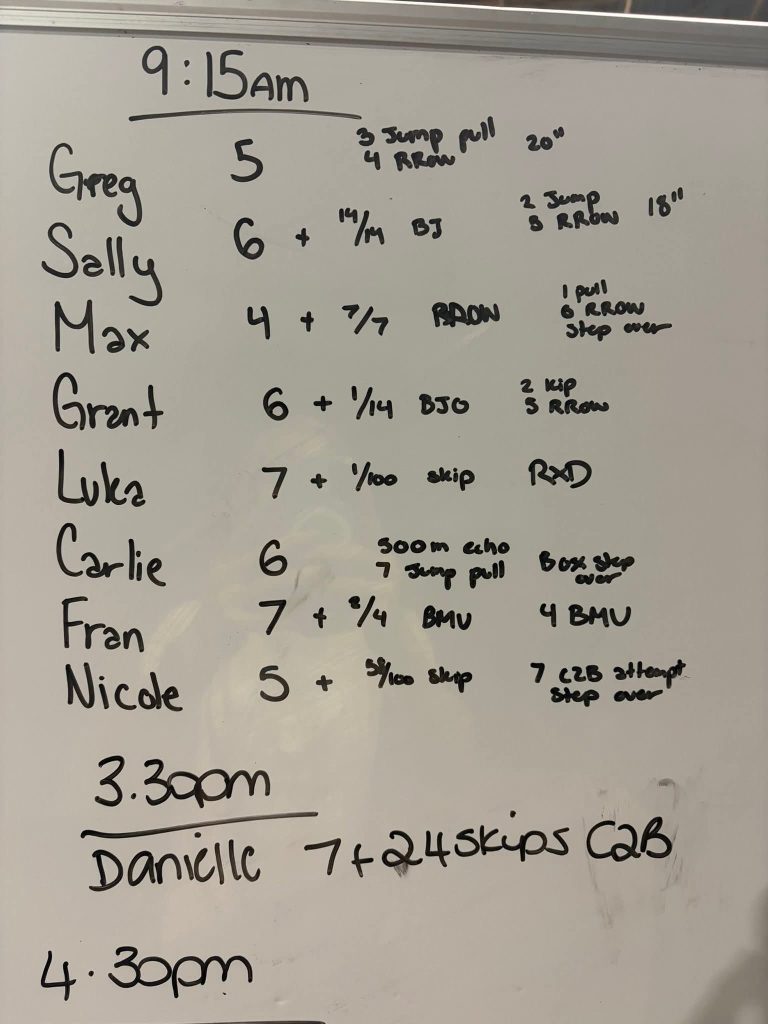 9:15Am
Greg 5 3 Jump pull 20"
4 RRow
Sally 6 + 14/14 BJ 2 Jump 18"
5 RROW
Max 4 + 7/7 RROW 1 pull
6 RROW
Step over
Grant 6 + 1/14 BJO 2 kip
5 RRow
Luka 7 + 1/100 skip RXD
Carlie 6 500m echo Box step
7 Jump pull over
Fran 7 + 2/4 BMU 4 BMU
Nicole 5 + /100 skip 7 C2B attempt
Step over
3.30pm
Danielle 7+24skips C2B
4.30pm